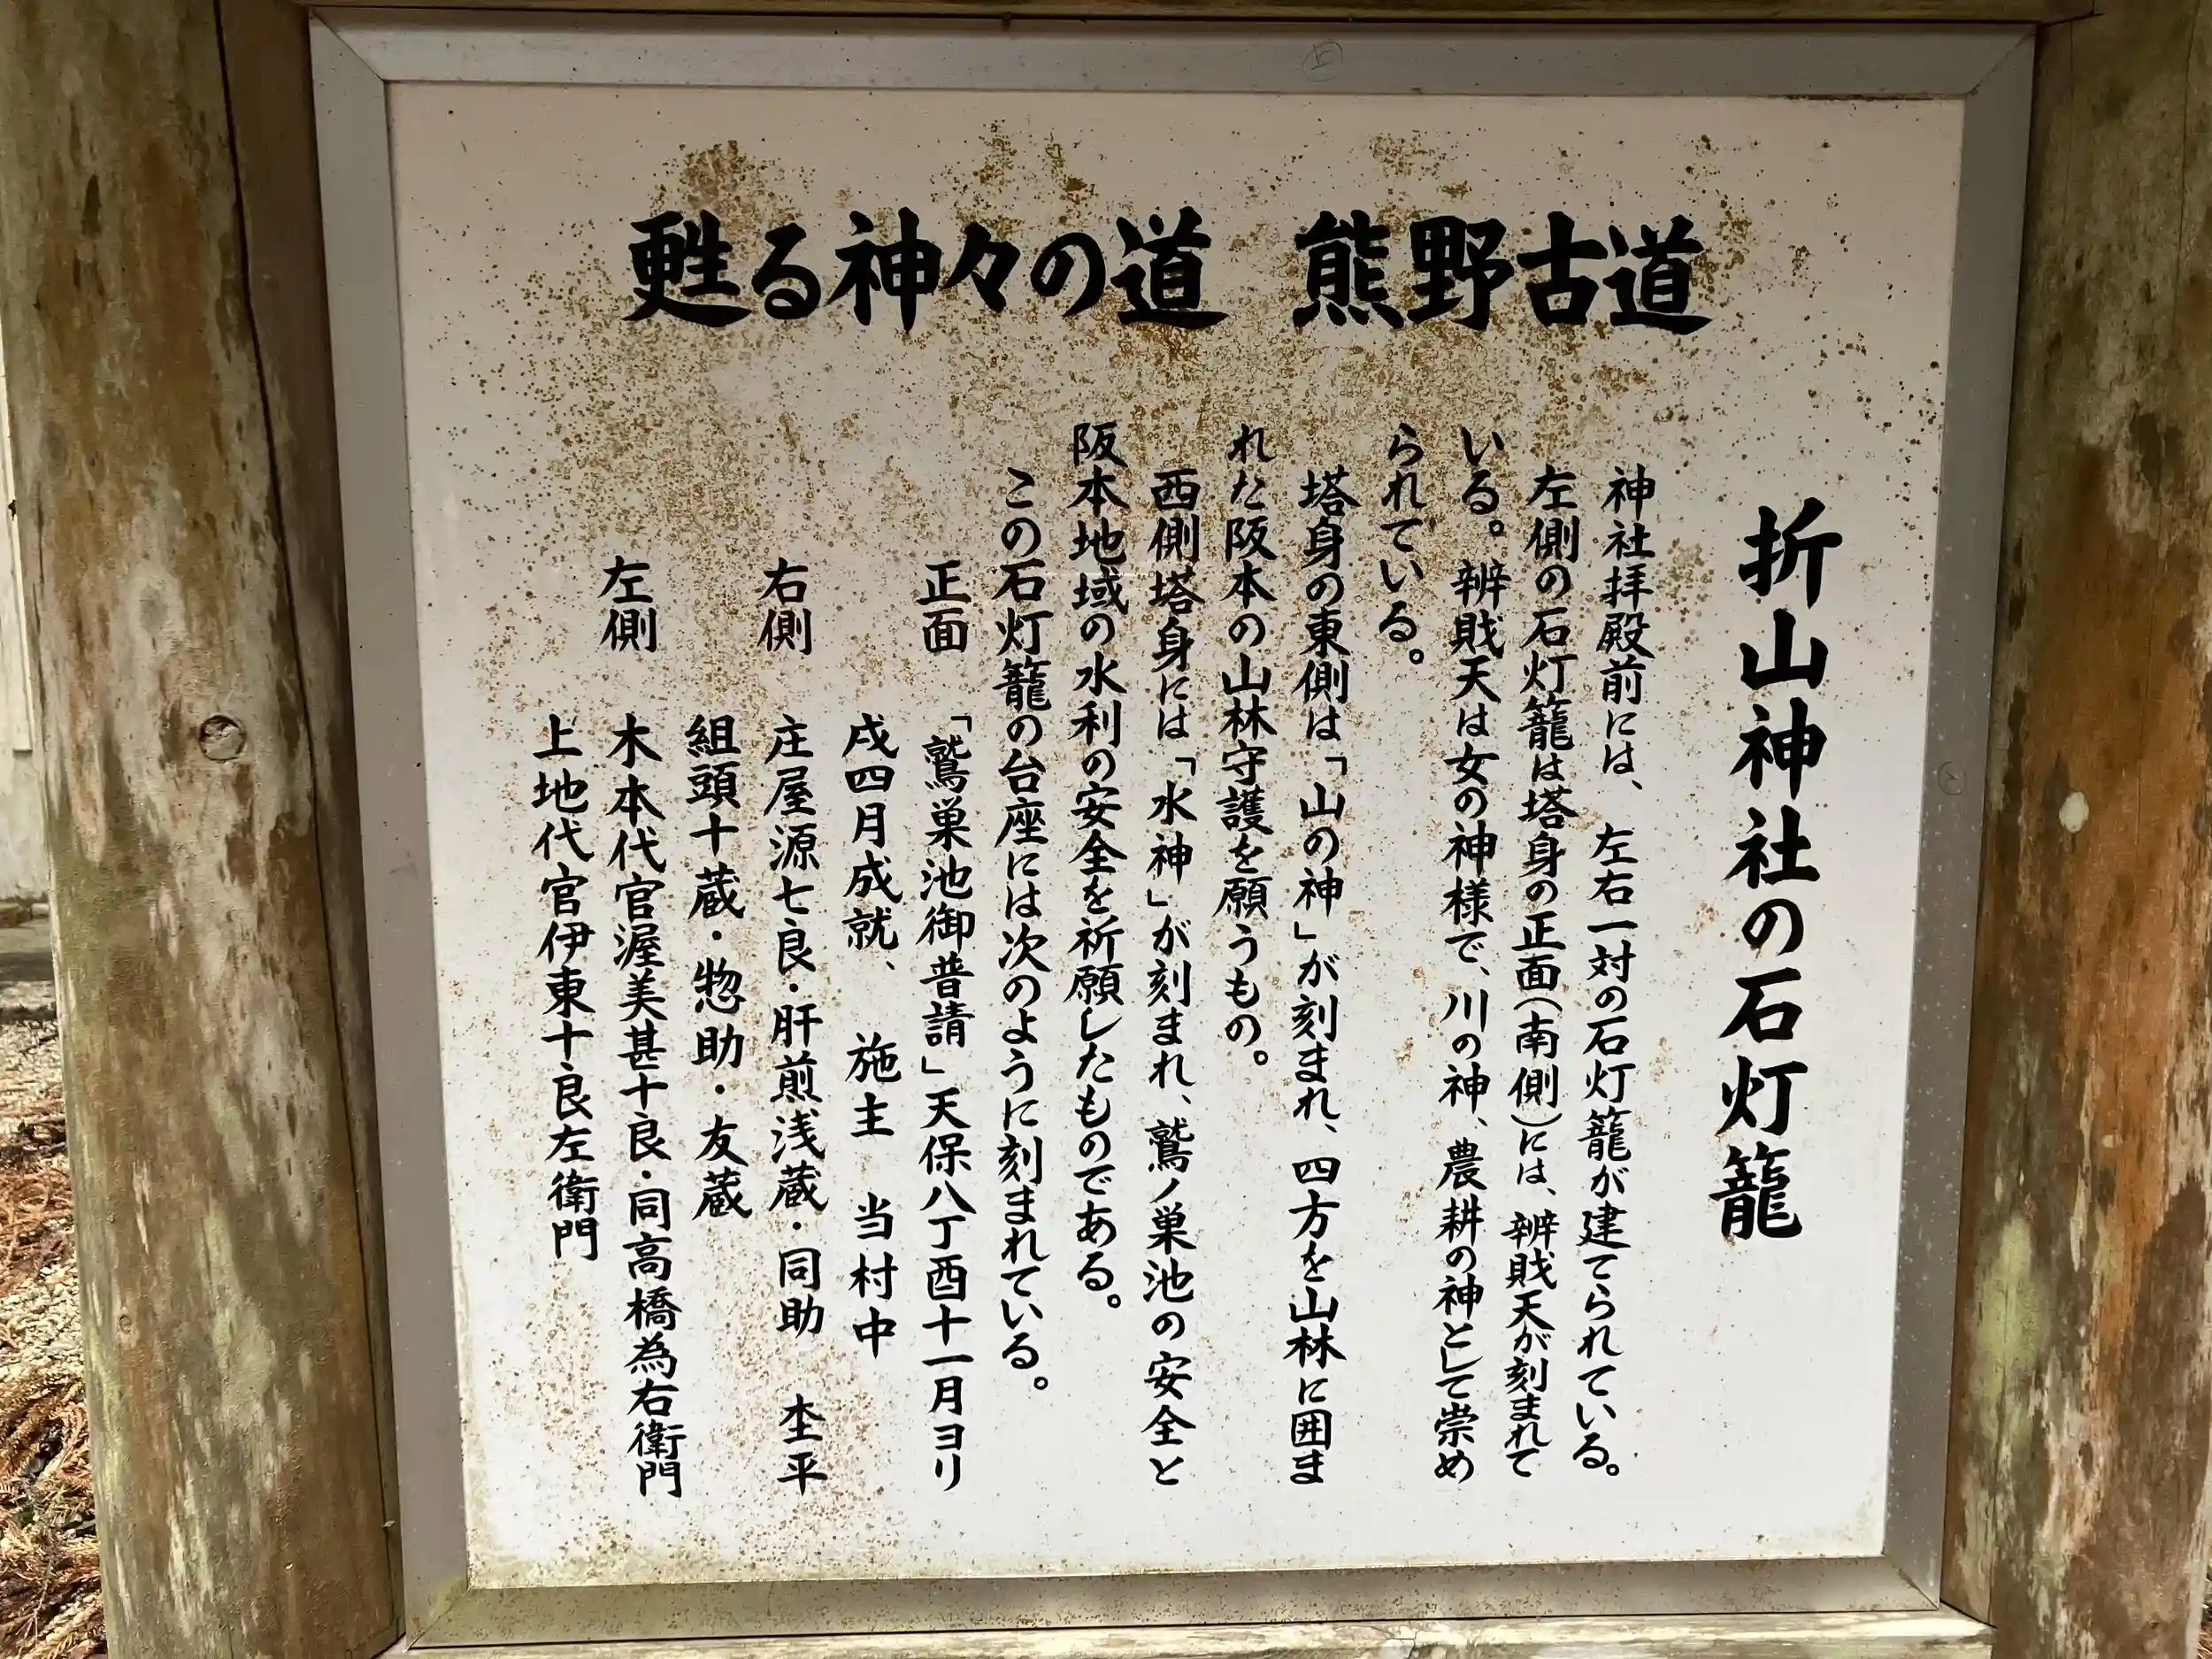 甦る神々の道　熊野古道
折山神社の石灯籠
神社拝殿前には、左右一対の石灯籠が建てられている。
左側の石灯籠は塔身の正面(南側)には、辨戝天が刻まれて
いる。辨戝天は女の神様で、川の神、農耕の神として崇め
られている。
塔身の東側は「山の神」が刻まれ、四方を山林に囲ま
れた阪本の山林守護を願うもの。
西側塔身には「水神」が刻まれ、鷲ノ巣池の安全と
阪本地域の水利の安全を祈願したものである。
この石灯籠の台座には次のように刻まれている。
正面　「鷲巣池御普請」天保八丁酉十一月ヨリ
戌四月成就、　施主　当村中
右側　庄屋源七良・肝煎浅蔵・同助　杢平
組頭十蔵・惣助・友蔵
左側　木本代官渥美甚十良・同高橋為右衛門
上地代官伊東十良左衛門